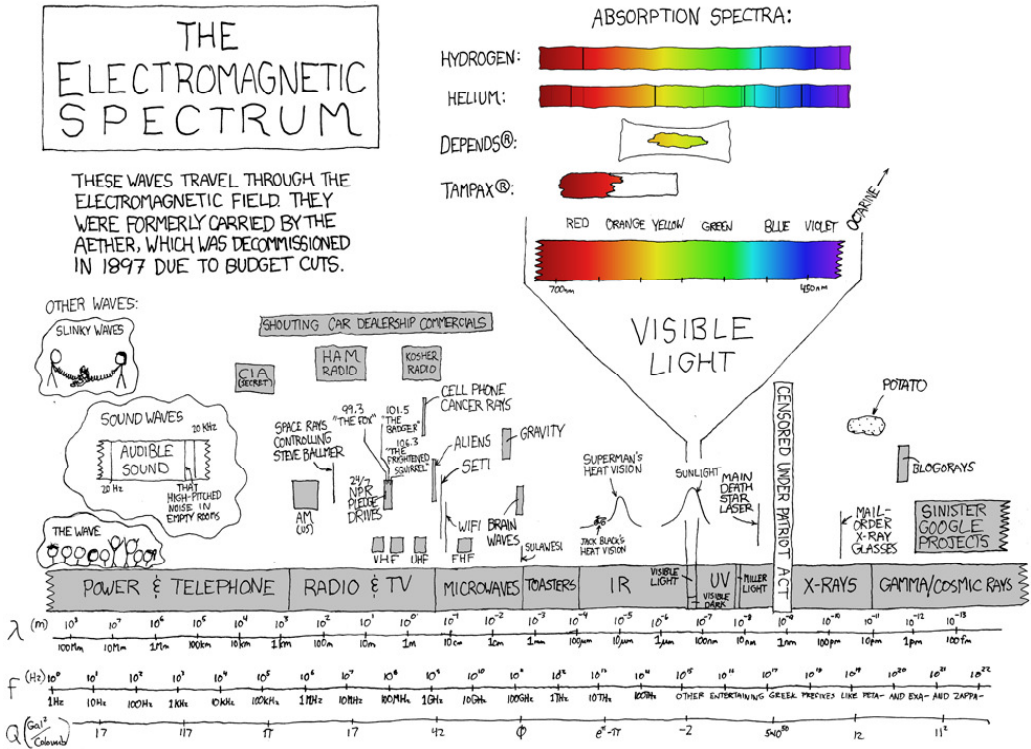 THE
ELECTROMAGNETIC
SPECTRUM
THESE WAVES TRAVEL THROUGH THE
ELECTROMAGNETIC FIELD. THEY
WERE FORMERLY CARRIED BY THE
AETHER, WHICH WAS DECOMMISSIONED
IN 1897 DUE TO BUDGET CUTS.
ABSORPTION SPECTRA:
HYDROGEN:
HELIUM:
DEPENDS®:
TAMPAX®:
RED ORANGE YELLOW GREEN BLUE VIOLET
OCTARINE
700nm 450nm
VISIBLE
LIGHT
OTHER WAVES:
SLINKY WAVES
SOUND WAVES
20 KHz
AUDIBLE
SOUND
20 Hz
THAT
HIGH-PITCHED
NOISE IN
EMPTY ROOMS
THE WAVE
SHOUTING CAR DEALERSHIP COMMERCIALS
CIA
(SECRET)
HAM
RADIO
KOSHER
RADIO
CELL PHONE
CANCER RAYS
SPACE RAYS
CONTROLLING
STEVE BALLMER
99.3
"THE FOX"
101.5
"THE
BADGER"
106.3
"THE
FRIGHTENED
SQUIRREL"
24/7
NPR
PLEDGE
DRIVES
AM
(US)
VHF
UHF
FHF
ALIENS
SETI
WIFI
GRAVITY
BRAIN
WAVES
SULAWESI
SUPERMAN'S
HEAT VISION
JACK BLACK'S
HEAT VISION
SUNLIGHT
MAIN
DEATH
STAR
LASER
CENSORED UNDER PATRIOT ACT
POTATO
BLOGORAYS
MAIL-
ORDER
X-RAY
GLASSES
SINISTER
GOOGLE
PROJECTS
POWER & TELEPHONE
RADIO & TV
MICROWAVES
TOASTERS
IR
VISIBLE
LIGHT
UV
VISIBLE
DARK
MILLER
LIGHT
X-RAYS
GAMMA/COSMIC RAYS
λ (m) 10⁸ 10⁷ 10⁶ 10⁵ 10⁴ 10³ 10² 10¹ 10⁰ 10⁻¹ 10⁻² 10⁻³ 10⁻⁴ 10⁻⁵ 10⁻⁶ 10⁻⁷ 10⁻⁸ 10⁻⁹ 10⁻¹⁰ 10⁻¹¹ 10⁻¹² 10⁻¹³
100Mm 10Mm 1Mm 100km 10km 1km 100m 10m 1m 10cm 1cm 1mm 100µm 10µm 1µm 100nm 10nm 1nm 100pm 10pm 1pm 100fm
f (Hz) 10⁰ 10¹ 10² 10³ 10⁴ 10⁵ 10⁶ 10⁷ 10⁸ 10⁹ 10¹⁰ 10¹¹ 10¹² 10¹³ 10¹⁴ 10¹⁵ 10¹⁶ 10¹⁷ 10¹⁸ 10¹⁹ 10²⁰ 10²¹ 10²²
1Hz 10Hz 100Hz 1KHz 10KHz 100KHz 1MHz 10MHz 100MHz 1GHz 10GHz 100GHz 1THz 10THz 100THz OTHER ENTERTAINING GREEK PREFIXES LIKE PETA- AND EXA- AND ZAPPA-
Q (Gal²/Coloumb) 17 117 π 17 42 φ eᵉ-π -2 12 11²